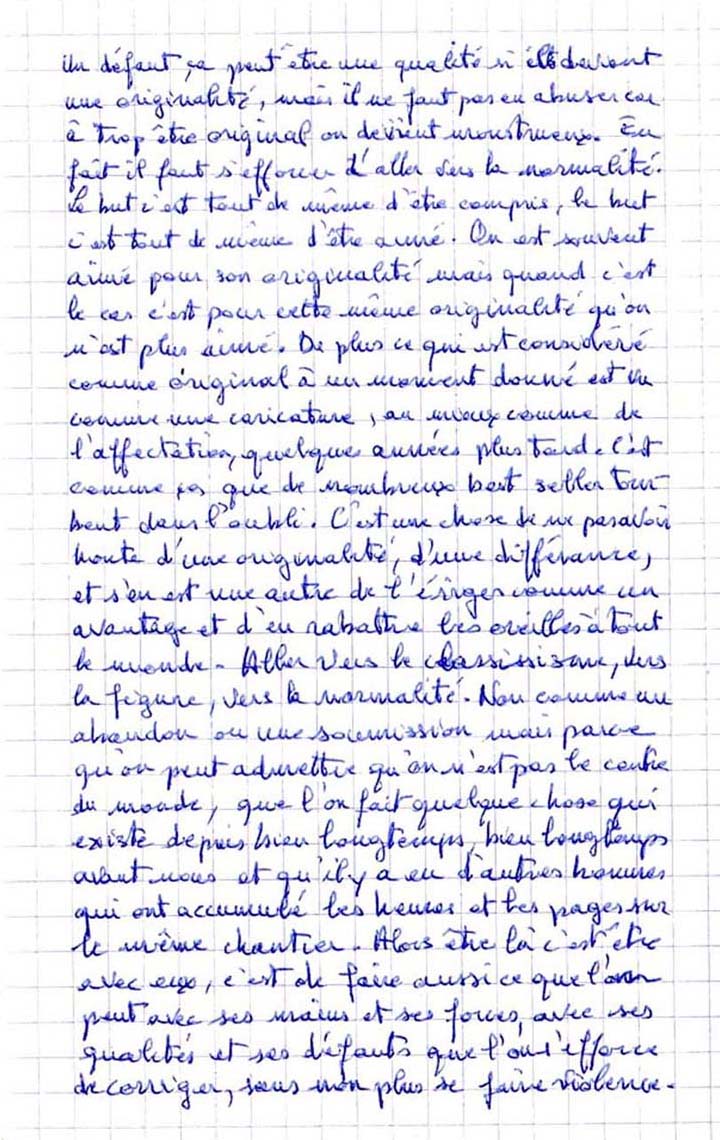 Un défaut, ça peut être une qualité si elle devient
une originalité, mais il ne faut pas en abuser car
à trop être original on devient monstrueux. En
fait il faut s'efforcer d'aller vers la normalité.
Le but c'est tout de même d'être compris, le but
c'est tout de même d'être aimé. On est souvent
aimé pour son originalité mais quand c'est
le cas c'est pour cette même originalité qu'on
n'est plus aimé. De plus ce qui est considéré
comme original à un moment donné est vu
comme une caricature, au mieux comme de
l'affectation, quelques années plus tard. C'est
comme ça que de nombreux best seller tom-
bent dans l'oubli. C'est une chose de ne pas avoir
honte d'une originalité, d'une différance,
et s'en est une autre de l'ériger comme un
avantage et d'en rabattre les oreilles à tout
le monde. Aller vers le classissisme, vers
la figure, vers la normalité. Non comme un
abandon ou une soumission mais parce
qu'on peut admettre qu'on n'est pas le centre
du monde, que l'on fait quelque chose qui
existe depuis bien longtemps, bien longtemps
avant nous et qu'il y a eu d'autres hommes
qui ont accumulé les heures et les pages sur
le même chantier. Alors être là c'est être
avec eux, c'est de faire aussi ce que l'on
peut avec ses mains et ses forces, avec ses
qualités et ses défauts que l'on s'efforce
de corriger, sans non plus se faire violence.